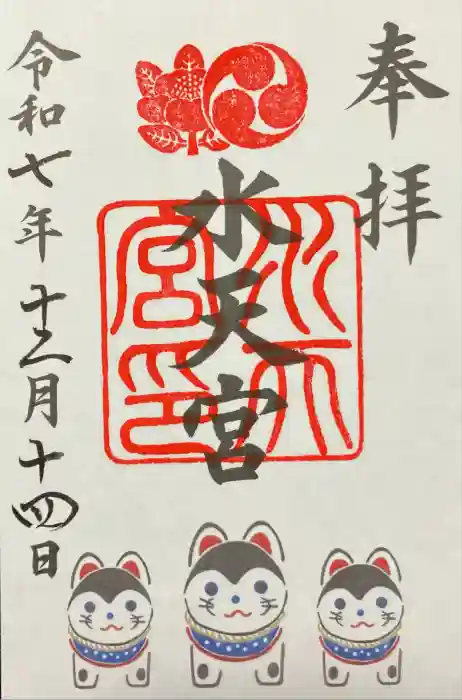 奉拝
水天宮
水天宮印
令和七年十二月十四日